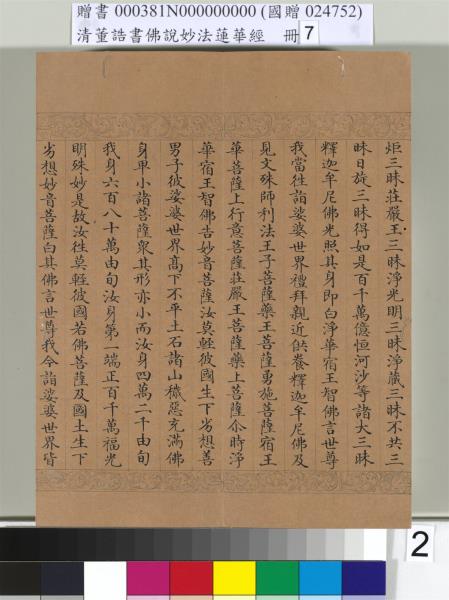 贈書 000381N000000000 (國贈 024752)
清董誥書佛說妙法蓮華經 冊 7
炬三昧莊嚴王三昧淨光明三昧淨藏三昧不共三
昧日旋三昧得如是百千萬億恒河沙等諸大三昧
釋迦牟尼佛光照其身即白淨華宿王智佛言世尊
我當往詣娑婆世界禮拜親近供養釋迦牟尼佛及
見文殊師利法王子菩薩藥王菩薩勇施菩薩宿王
華菩薩上行意菩薩莊嚴王菩薩藥上菩薩尒時淨
華宿王智佛告妙音菩薩汝莫輕彼國生下劣想善
男子彼娑婆世界高下不平土石諸山穢惡充滿佛
身卑小諸菩薩衆其形亦小而汝身四萬二千由旬
我身六百八十萬由旬汝身第一端正百千萬福光
明殊妙是故汝往莫輕彼國若佛菩薩及國土生下
劣想妙音菩薩白其佛言世尊我今詣娑婆世界皆
2